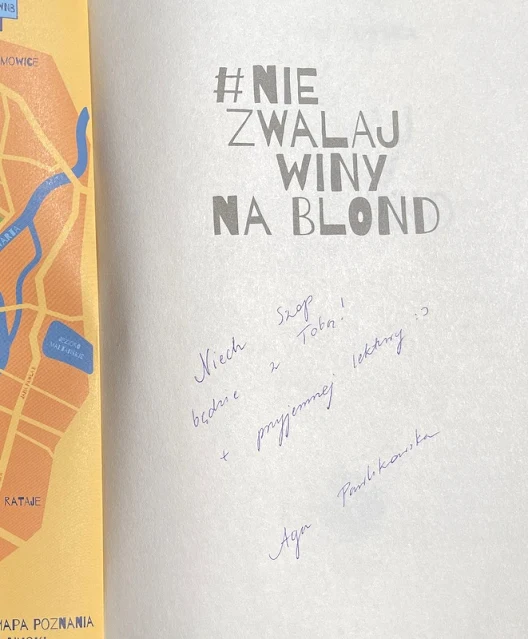 MOWICE
RATAJE
MAPA POZNANIA
#NIE
ZWALAJ
WINY
NA BLOND
Niech Szop
będzie z Tobą!
+ przyjemnej lektury :)
Aga Pawlikowska